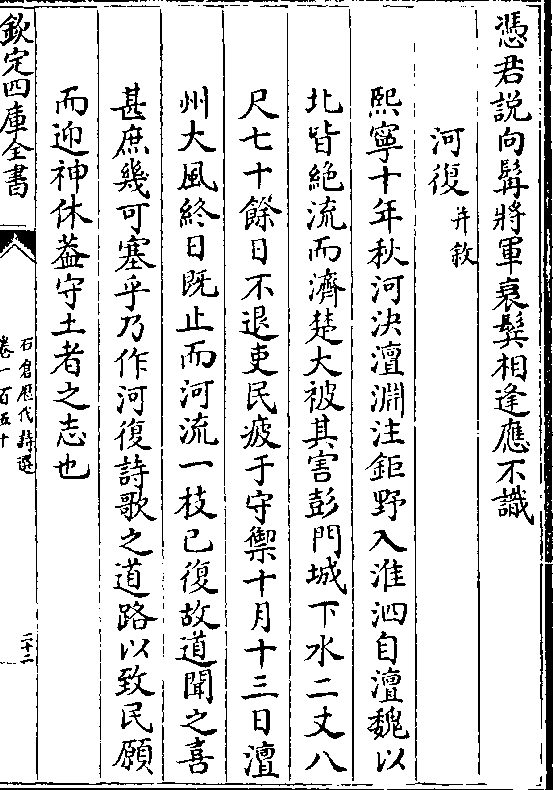 憑君説向髯將軍衰鬢相逢應不識
河復并敘
熙寧十年秋河決澶淵注鉅野入淮泗自澶魏以
北皆絶流而濟楚大被其害彭門城下水二丈八
尺七十餘日不退吏民疲于守禦十月十三日澶
州大風終日既止而河流一枝已復故道聞之喜
甚庶幾可塞乎乃作河復詩歌之道路以致民願
而迎神休葢守土者之志也
欽定四庫全書
石倉歴代詩選
卷一百五十
二十二